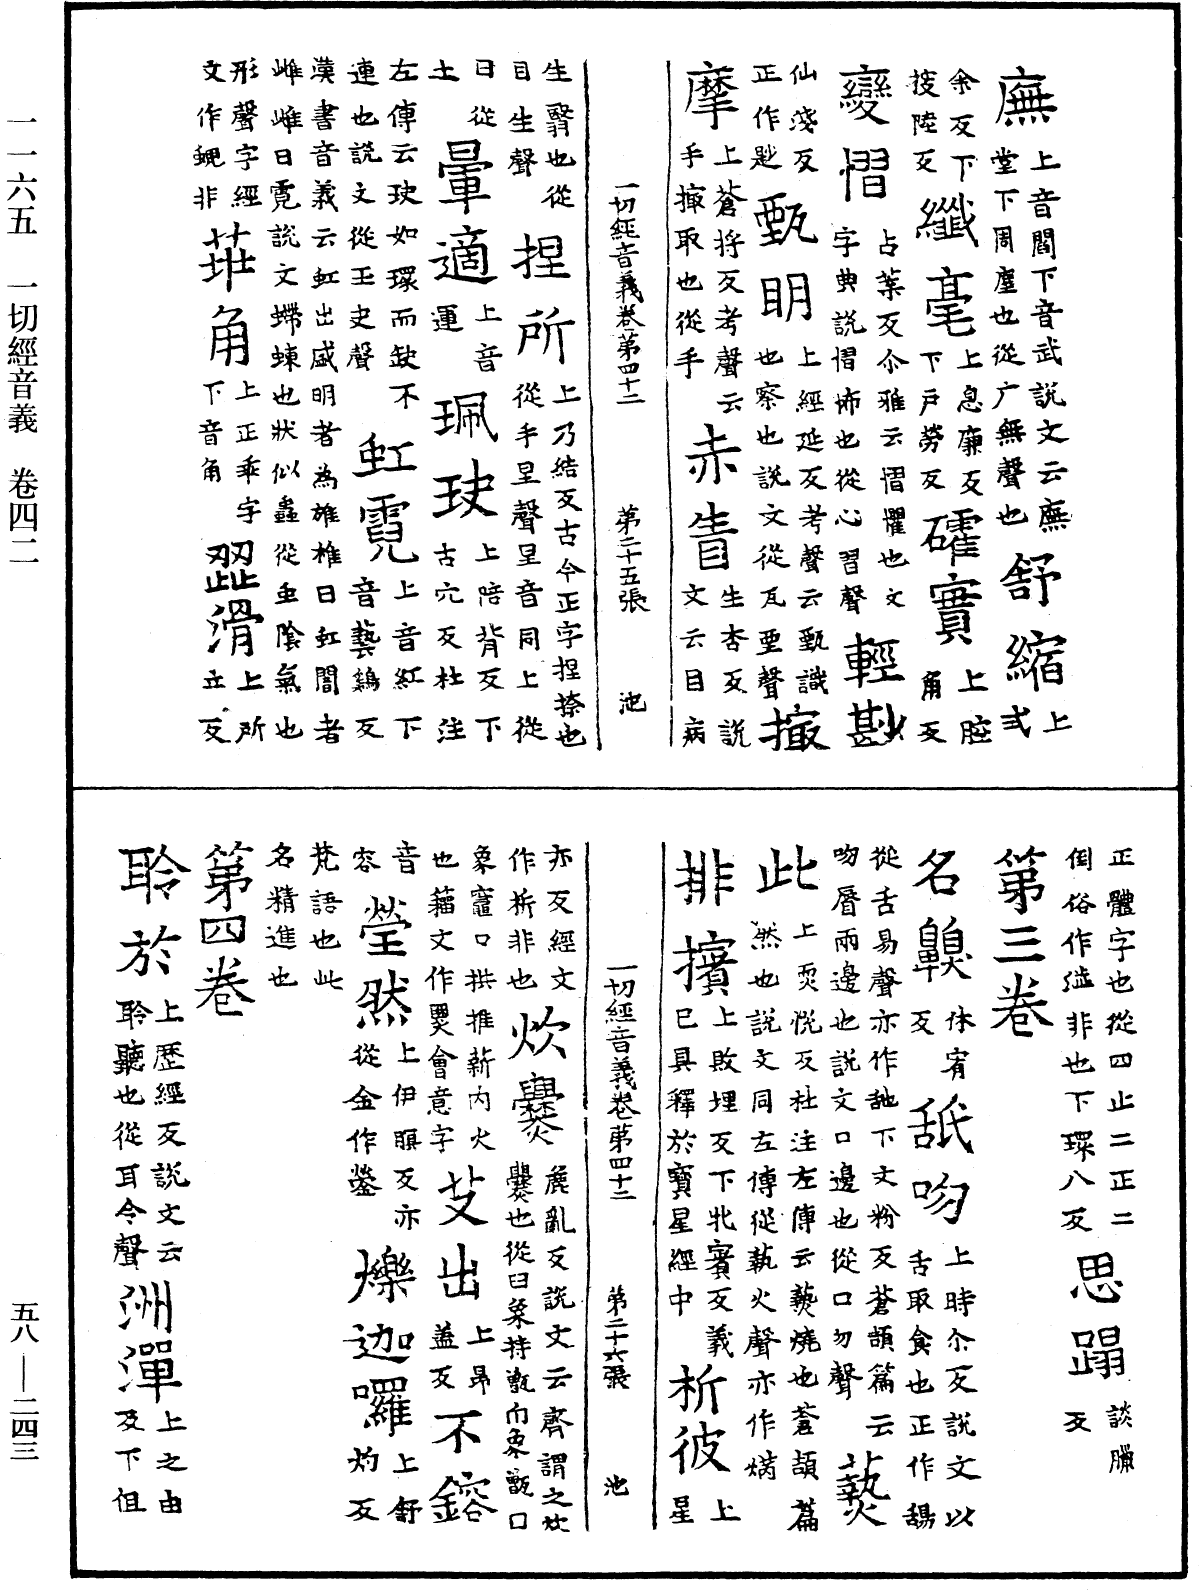 一一六五　一切經音義　卷四二
五八——二四三
廡上音閻下音武說文云廡堂下周廡也從广無聲也舒縮上式
余反下纖毫上息廉反下戶勞反礭實上腔角反
捘陸反
變慴占葉反尒雅云慴懼也文字典說慴怖也從心習聲輕尠
仙淺反正作尟甄明上經延反考聲云甄識也察也說文從瓦垔聲㨖
摩上蒼將反考聲云手㨖取也從手赤眚生杏反說文云目病
一切經音義卷第四十二　第二十五張　池
生翳也從目生聲捏所上乃結反古今正字捏捺也從手呈聲呈音同上從
日從土暈適上音運珮玦上陪背反下古穴反杜注
左傳云玦如環而缺不連也說文從王史聲虹霓上音紅下音藝鷄反
漢書音義云虹出盛明者為雄椎日虹闇者雌雌日霓說文螮蝀也狀似蟲從虫陰氣也
形聲字經文作蜺非𦮃角上正乖字下音角澀滑上所立反
正體字也從四止二正二倒俗作澁非也下環八反思蹋談臘反
第三卷
名齅休宥反舐吻上時尒反說文以舌取食也正作䑛
從舌易聲亦作䑛下文粉反蒼頡篇云吻脣兩邊也說文口邊也從口勿聲爇
此上耎悅反杜注左傳云爇燒也蒼頡篇然也說文同左傳從蓺火聲亦作焫
排擯上敗埋反下北賓反義已具釋於寶星經中析彼上星
一切經音義卷第四十二　第二十六張　池
亦反經文作析非也炊爨麁亂反說文云齊謂之炊爨也從臼象持甑冂象甑口
𠔏象竈口拱推薪內火也籀文作㸑會意字艾出上昂蓋反不鎔
音容瑩然上伊瞑反亦從金作鎣爍迦囉上舒灼反
梵語也此名精進也
第四卷
聆於上歷經反說文云聆聽也從耳令聲洲潬上之由反下但